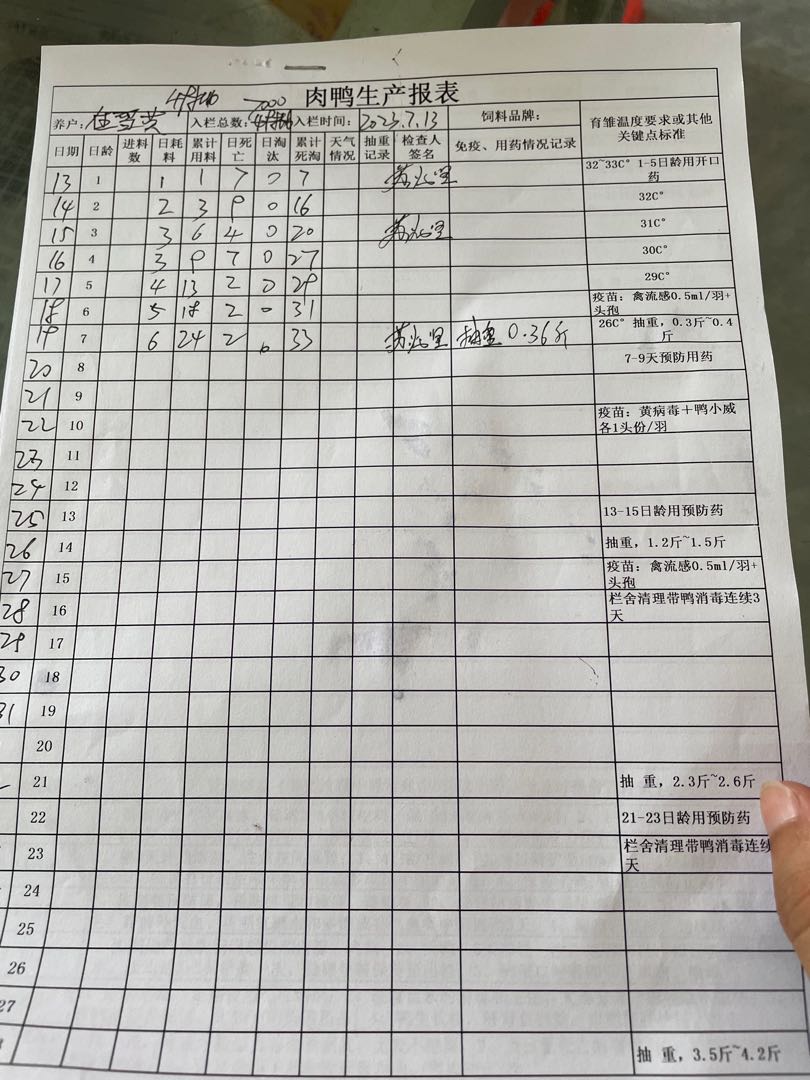 肉鸭生产报表
养户: 入栏总数: 7000 入栏时间: 2023.7.13 饲料品牌: 育雏温度要求或其他关键点标准
日期 日龄 进料数 日耗料 累计用料 日死亡 日淘汰 累计死淘 天气情况 抽重记录 检查人签名 免疫、用药情况记录
13 1 1 1 7 0 7 32~33C° 1-5日龄用开口药
14 2 2 3 9 0 16 32C°
15 3 3 6 4 0 20 31C°
16 4 3 9 7 0 27 30C°
17 5 4 13 2 0 29 29C°
18 6 5 18 2 0 31 疫苗: 禽流感0.5ml/羽+头孢
19 7 6 24 2 0 33 抽重 0.36斤 26C° 抽重, 0.3斤~0.4斤
20 8 7-9天预防用药
21 9
22 10 疫苗: 黄病毒+鸭小威各1头份/羽
23 11
24 12
25 13 13-15日龄用预防药
26 14 抽重, 1.2斤~1.5斤
27 15 疫苗: 禽流感0.5ml/羽+头孢
28 16 栏舍清理带鸭消毒连续3天
29 17
30 18
31 19
20
21 抽 重, 2.3斤~2.6斤
22 21-23日龄用预防药
23 栏舍清理带鸭消毒连续天
24
25
26
27
抽 重, 3.5斤~4.2斤